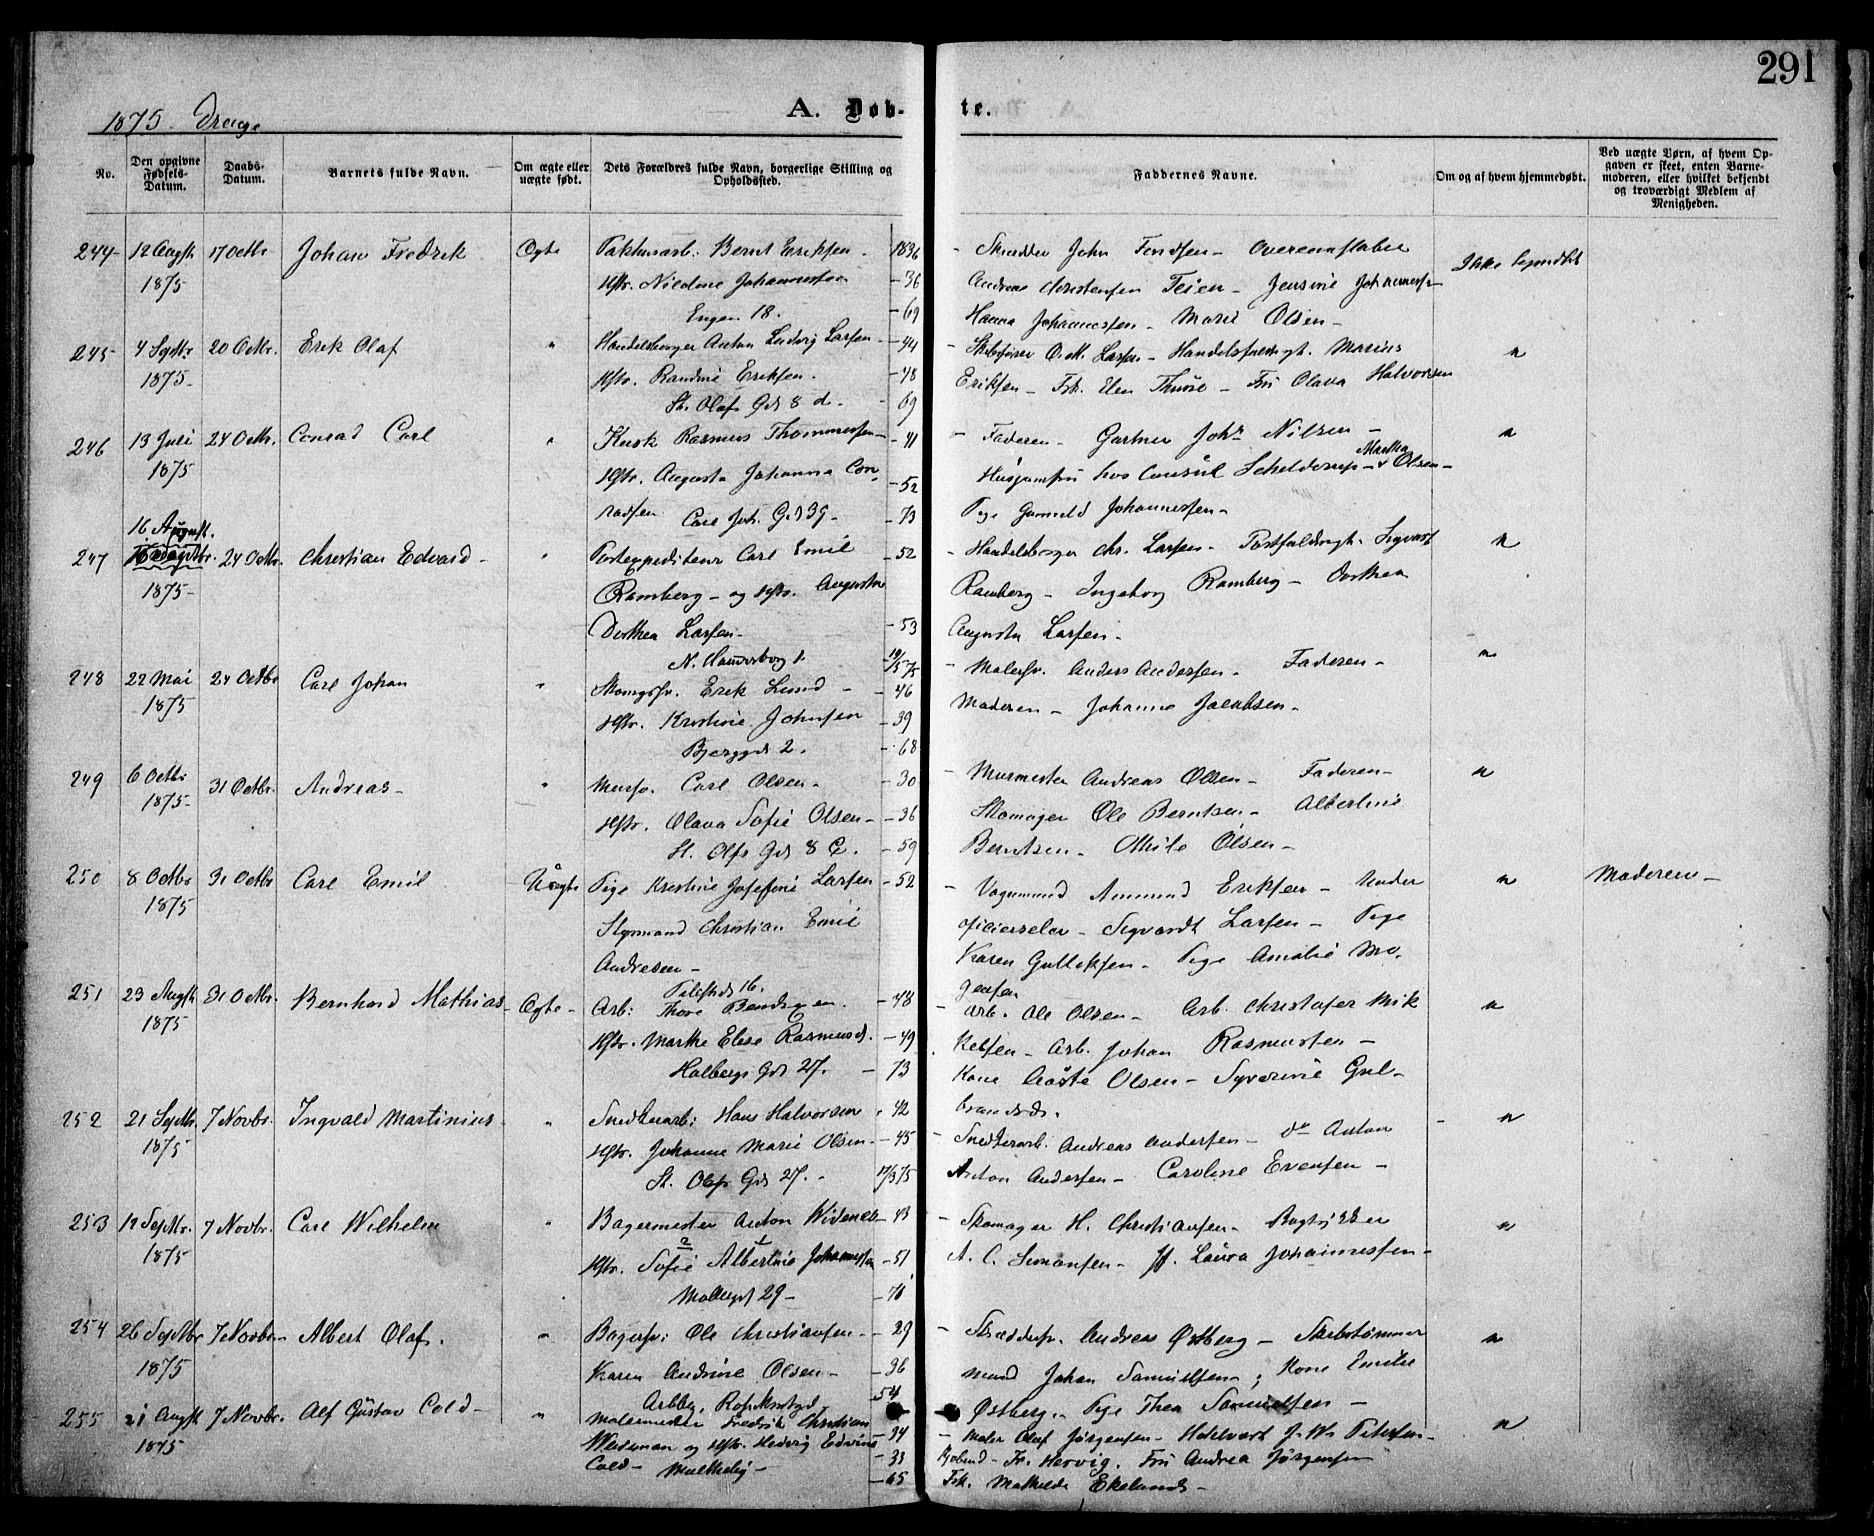 291
1875. Drenge
A. Døb-
te.
No.
Den opgivne Fødsels-Datum.
Daabs-Datum.
Barnets fulde Navn.
Om ægte eller uægte født.
Dets Forældres fulde Navn, borgerlige Stilling og Opholdssted.
Faddernes Navne.
Om og af hvem hjemmedøbt.
Ved uægte Børn, af hvem Opgaven er skeet, enten Barnemoderen, eller hvilket bekjendt og troværdigt Medlem af Menigheden.
244 12 Augst 17 Octbr Johan Fredrik Ægte Pakhusarb: Bernt Eriksen - 1836 - Skrædder John
1875 Hstr. Johannessen - 36 Andreas Christensen Feien - Jensine Johannessen
Engen 18. - 69 Hanna Johannessen - Marie Olsen -
245 4 Septbr 20 Octbr. Erik Olaf " Handelsborger Anton Ludvig Larsen - 44 - O. M. Larsen - Marius "
1875 - Hstr. Randine Eriksen. - 48 Eriksen - Frk. Elen - Fru Olava Halvorsen
St. Olafs Gd 8 d. - 69
246 13 Juli 24 Octbr. Conrad Carl " Kusk Rasmus Thommessen - 41 - Faderen - Gartner Johs Nilsen - "
1875 Hstr. Augusta Johanna Con - 52 Husjomfru hos Consul Schelderup - Martha Olsen -
radsen Carl Joh. Gd 39 - 73 Pige Gunnild Johannessen -
16. August.
247 24 Octbr. Christian Edvard - " Postexpediteur Carl Emil - 52 - Handelsborger Chr. Larsen - Postfuldmgt. Sigvart "
1875 - Ramberg - og Hstr. Augusta Ramberg - Ingeborg Ramberg - Dorthea
Dorthea Larsen - - 53 Augusta Larsen -
1. 19/5 75
248 22 Mai 24 Octbr Carl Johan " Erik Lund - - 46 - Malersv. Anders Andersen - Faderen - "
1875 Hstr. Kristine Johnsen - 39 Moderen - Johanne Jacobsen -
Berggd 2. - 68
249 6 Octbr 31 Octbr. Andreas - " Mursv. Carl Olsen - - 30 - Murmester Andreas Olsen - Faderen - "
1875 - Hstr. Olava Sofie Olsen - - 36 Skomager Ole Berntsen - Albertine
St. Olfs Gd 8 - 59 Berntsen - Olsen -
250 8 Octbr 31 Octbr Carl Emil Uægte Pige Kristine Josefine Larsen - 52 - Vognmand Ammund Eriksen - Under " Moderen -
1875 Styrmand Christian Emil Sigvardt Larsen - Pige
Andresen - Karen Gulliksen - Pige Amalie Mo-
Pilestrd 16. gensen
251 23 Augst 31 Octbr. Bernhard Mathias - Ægte - Arb: Thore - 48 - Arb. Ole Olsen - Arb. Christofer Mik "
1875 Hstr. Marthe Elise Rasmusd. - 49 kelsen - Arb. Johan Rasmussen -
Holbergs Gd 27. - 73 Kone Olsen - Syverine Gul-
brandsd.
252 21 Septbr. 7 Novbr. Ingvald Martinius - " Snedkerarb: Hans Halvorsen - 42 - Snedkerarb. Andreas Andersen - do Anton "
1875 Hstr. Johanne Marie Olsen - - 45 Anton Andersen - Caroline Evensen -
St. Olafs Gd 27. - 17/3 75
253 12 Septbr. 7 Novbr. Carl Wilhelm " Bagermester Anton - 43 - Skomager H. Christiansen - Bogtrykker "
1875 Hstr. Sofie Albertine Johannessen - 51 A. C. Simonsen - Jf. Laura Johannessen -
Møllergd 29 -
254 26 Septbr 7 Novbr - Albert Olaf. " Bagersv: Ole Christiansen - - 29 - Skræddersv. Andreas Østberg - Skibstømmer "
1875 Karen Andrine Olsen - - 36 mand Johan Samuelsen - ; Kone Emilie
54 Østberg. - Pige Thea Samuelsen -
255 21 Augst 7 Novbr. Alf Gustav Cold - " Malermester Fredrik Christian - 34 - Maler Olaf Jørgensen - J. W. Petersen - "
1875 og Hstr. Hedvig Edvine - 33 Kjøbmd - Fr. Hervig. Fru Andrea Jørgensen
Cold - - 65 Frk. Mathilde Ekelund -